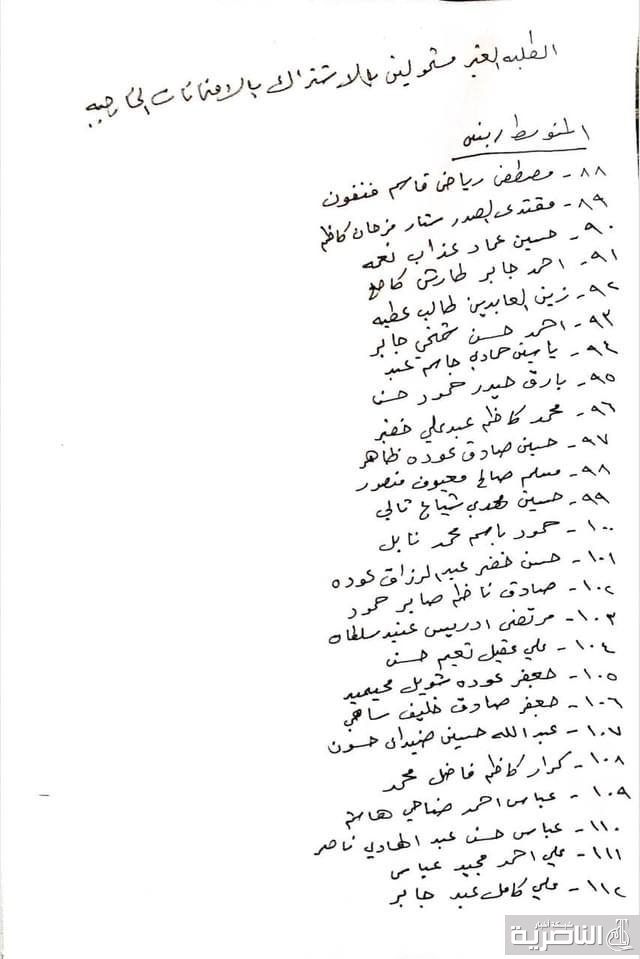 الطلبه الغير مشمولين بالاشتراك بالامتحانات الخارجيه
المتوسط / بنين
٨٨- مصطفى رياض قاسم
٨٩- مقتدى الصدر ستار فرحان كاظم
٩٠- حسين عماد عذاب نعمه
٩١- احمد جابر طارش
٩٢- زين العابدين طالب عطيه
٩٣- احمد حسن شمخي جابر
٩٤- ياسين حمادي جاسم عبد
٩٥- بارق حيدر حمود حسن
٩٦- محمد كاظم عبد علي خضير
٩٧- حسين صادق عوده ظاهر
٩٨- مسلم صالح معيوف منصور
٩٩- حسين مهدي شياع تالي
١٠٠- حمود باسم محمد نايل
١٠١- حسن خضر عبد الرزاق عوده
١٠٢- صادق ناظم صابر حمود
١٠٣- مرتضى ادريس عنيد سلطان
١٠٤- علي عقيل نعيم حسن
١٠٥- جعفر عوده شويل محيميد
١٠٦- جعفر صادق خليف ساهي
١٠٧- عبد الله حسين ضيدان حسون
١٠٨- كرار كاظم فاضل محمد
١٠٩- عباس احمد ضاحي هاشم
١١٠- عباس حسن عبد الهادي ناصر
١١١- علي احمد مجيد عباس
١١٢- علي كامل عبد جابر
شبكة اخبار
الناصرية